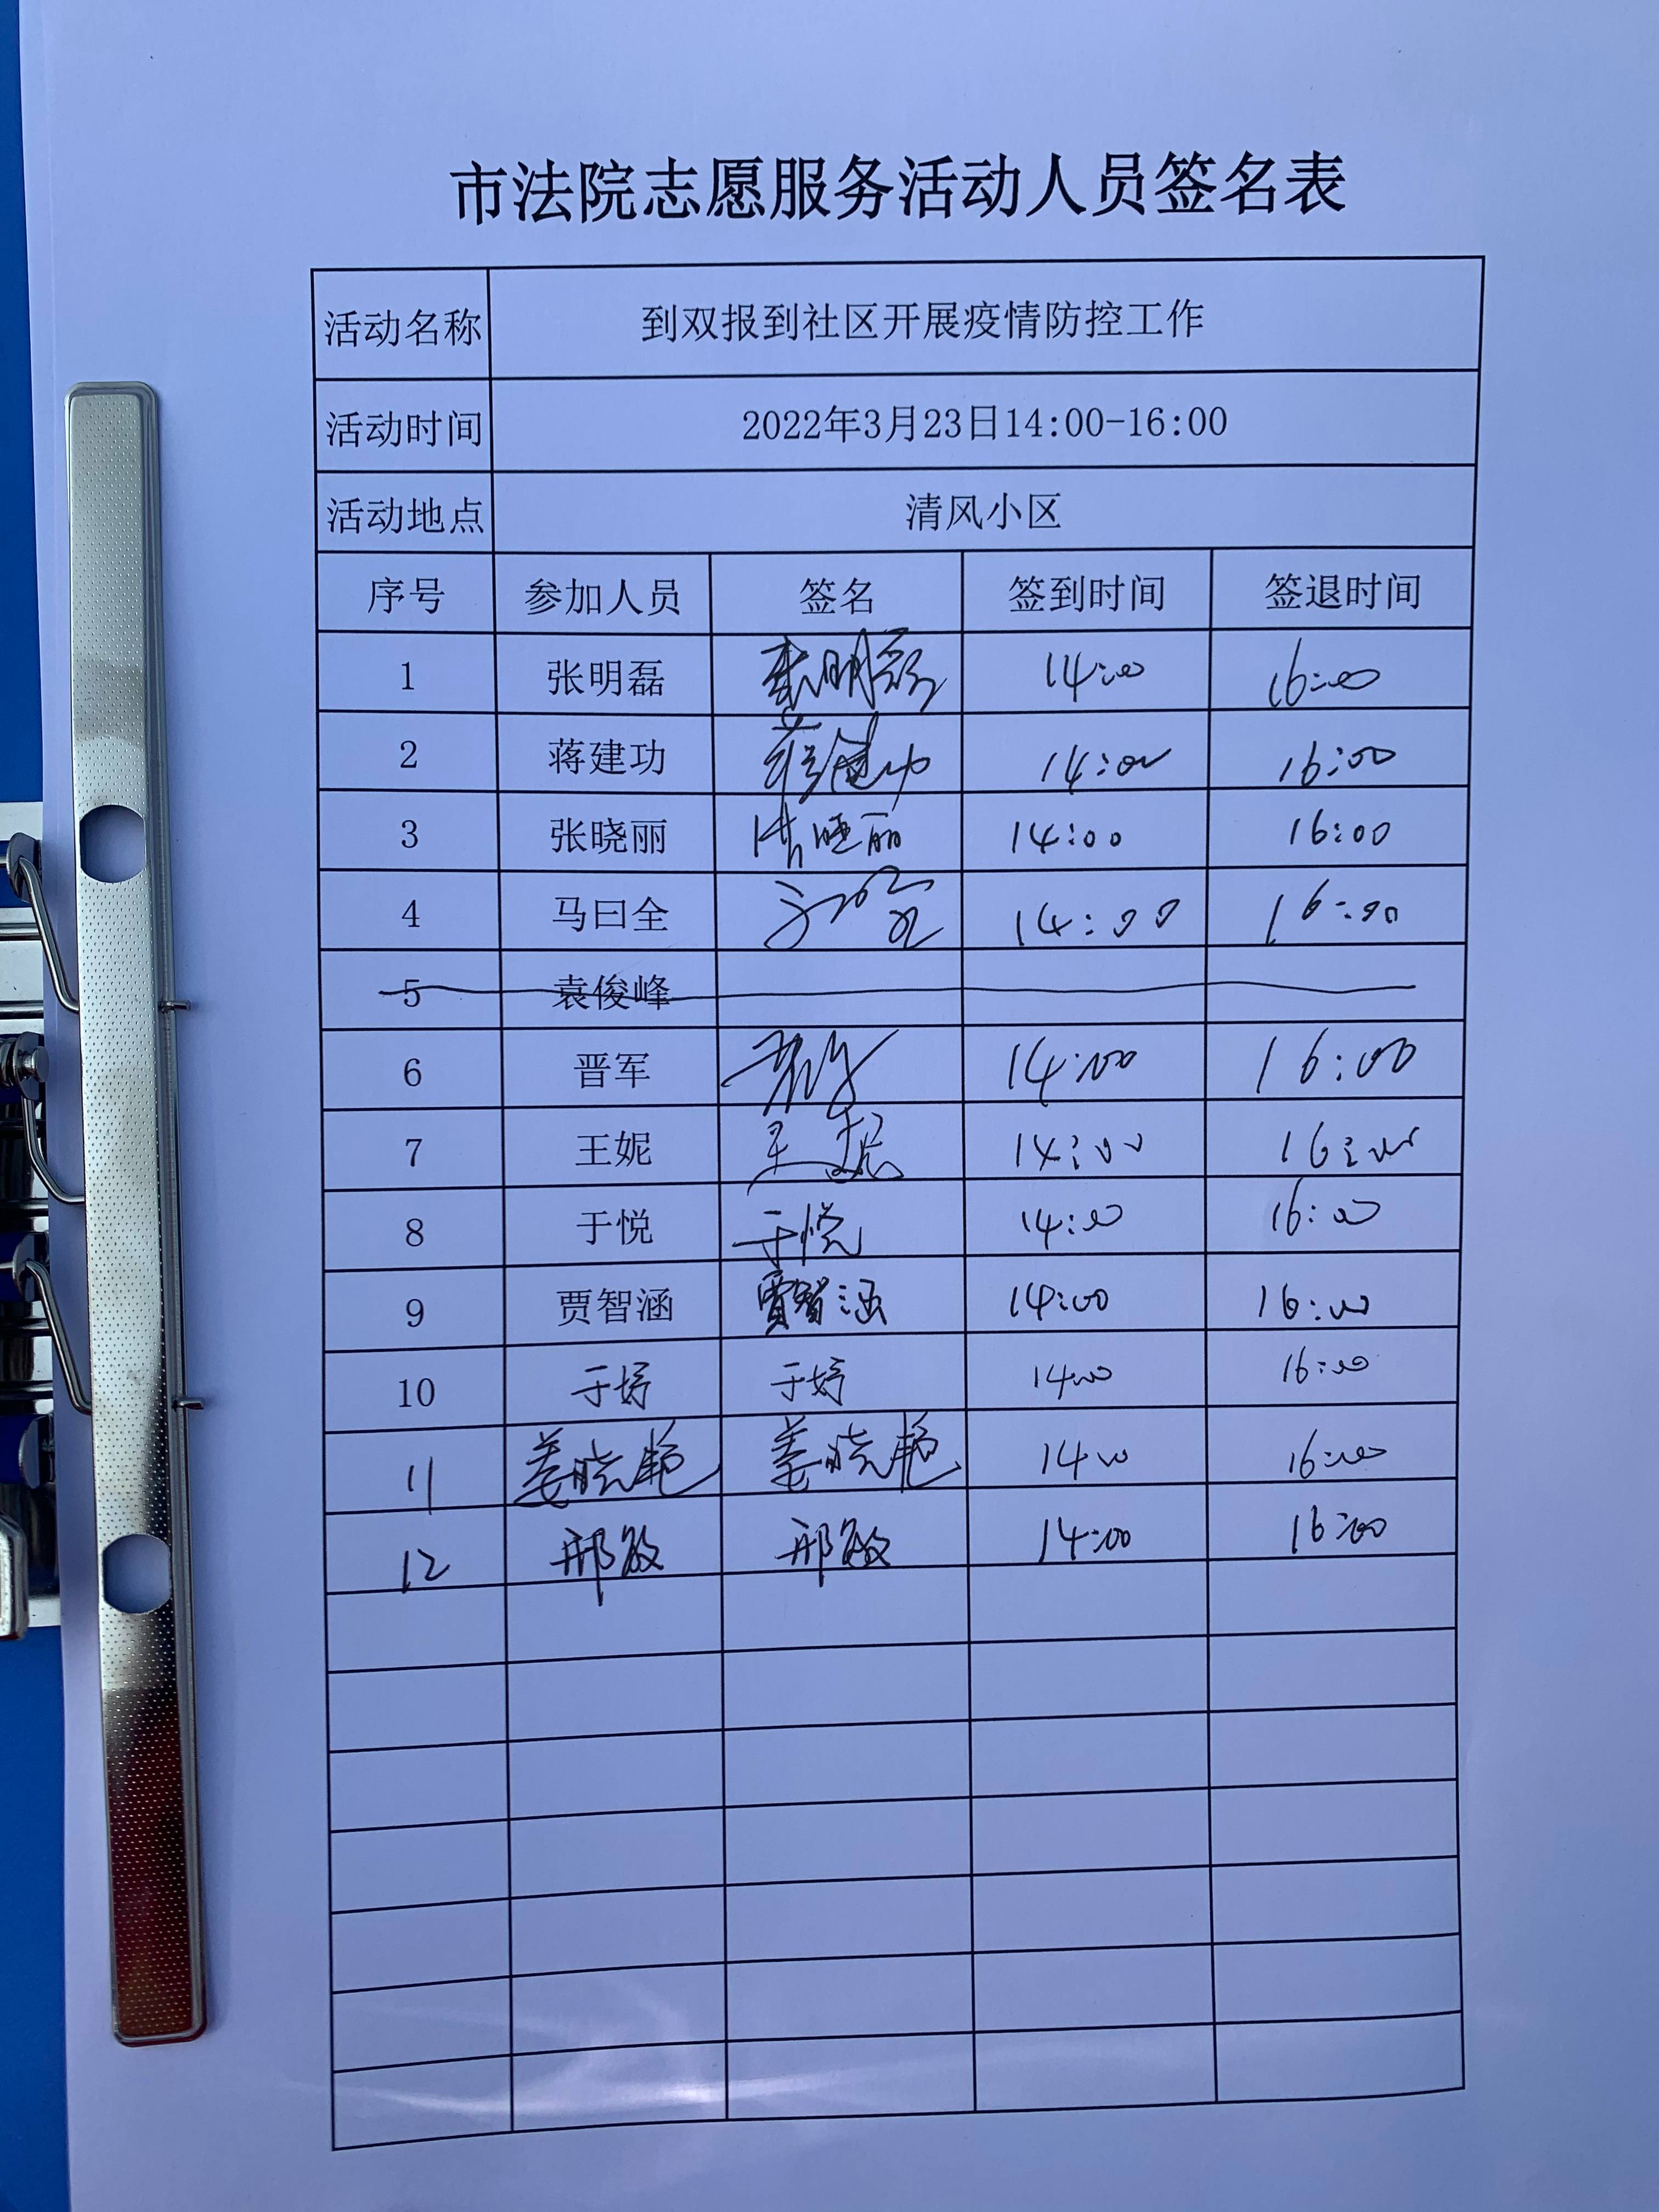 市法院志愿服务活动人员签名表
活动名称 到双报到社区开展疫情防控工作
活动时间 2022年3月23日14:00-16:00
活动地点 清风小区
序号 参加人员 签名 签到时间 签退时间
1 张明磊 张明磊 14:00 16:00
2 蒋建功 蒋建功 14:00 16:00
3 张晓丽 张晓丽 14:00 16:00
4 马曰全 马曰全 14:00 16:00
5 袁俊峰
6 晋军 晋军 14:00 16:00
7 王妮 王妮 14:00 16:00
8 于悦 于悦 14:00 16:00
9 贾智涵 贾智涵 14:00 16:00
10 于婷 于婷 14:00 16:00
11 姜晓艳 姜晓艳 14:00 16:00
12 邢敏 邢敏 14:00 16:00